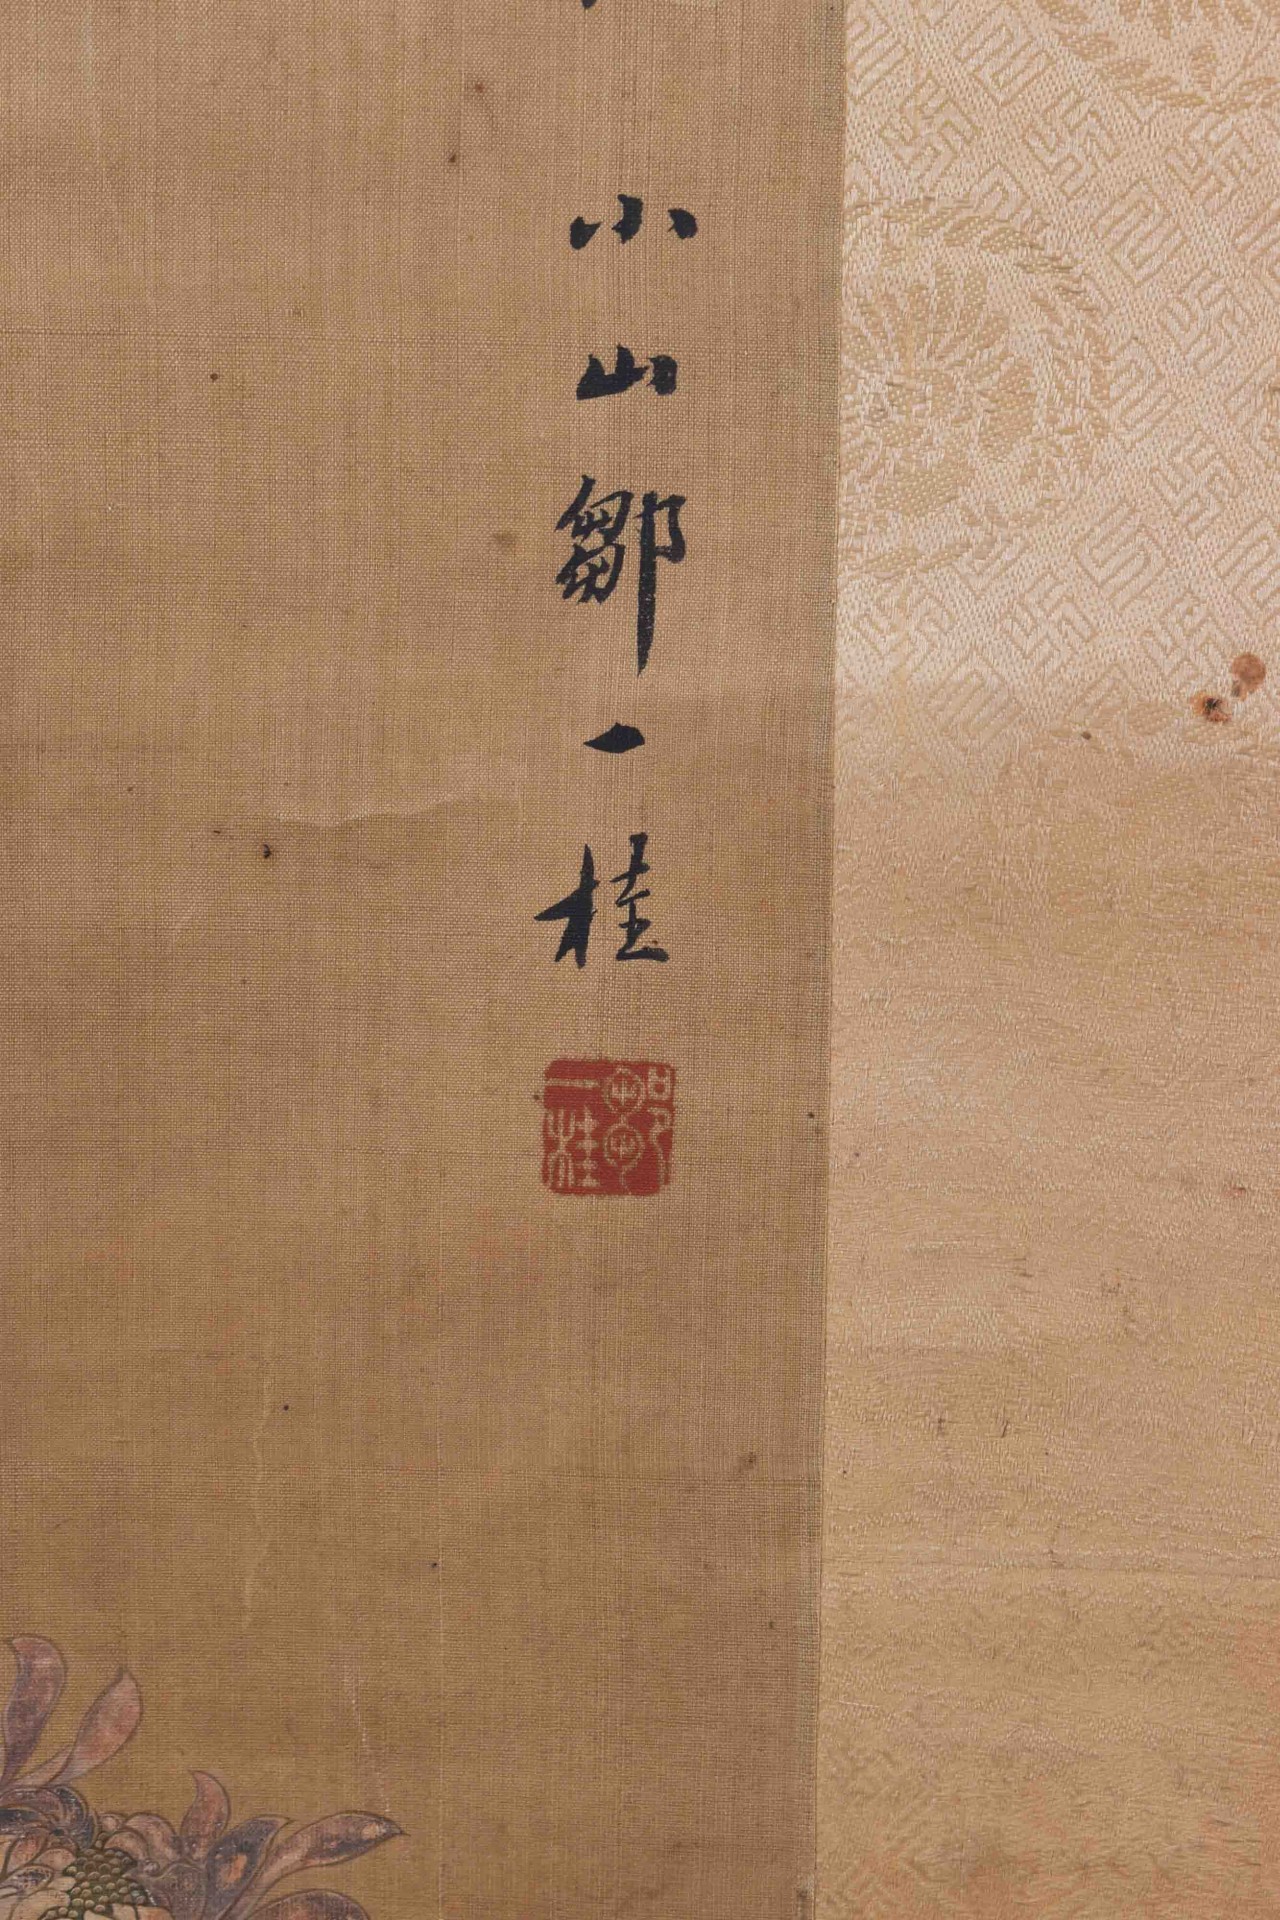 小山鄒一桂
鄒一桂